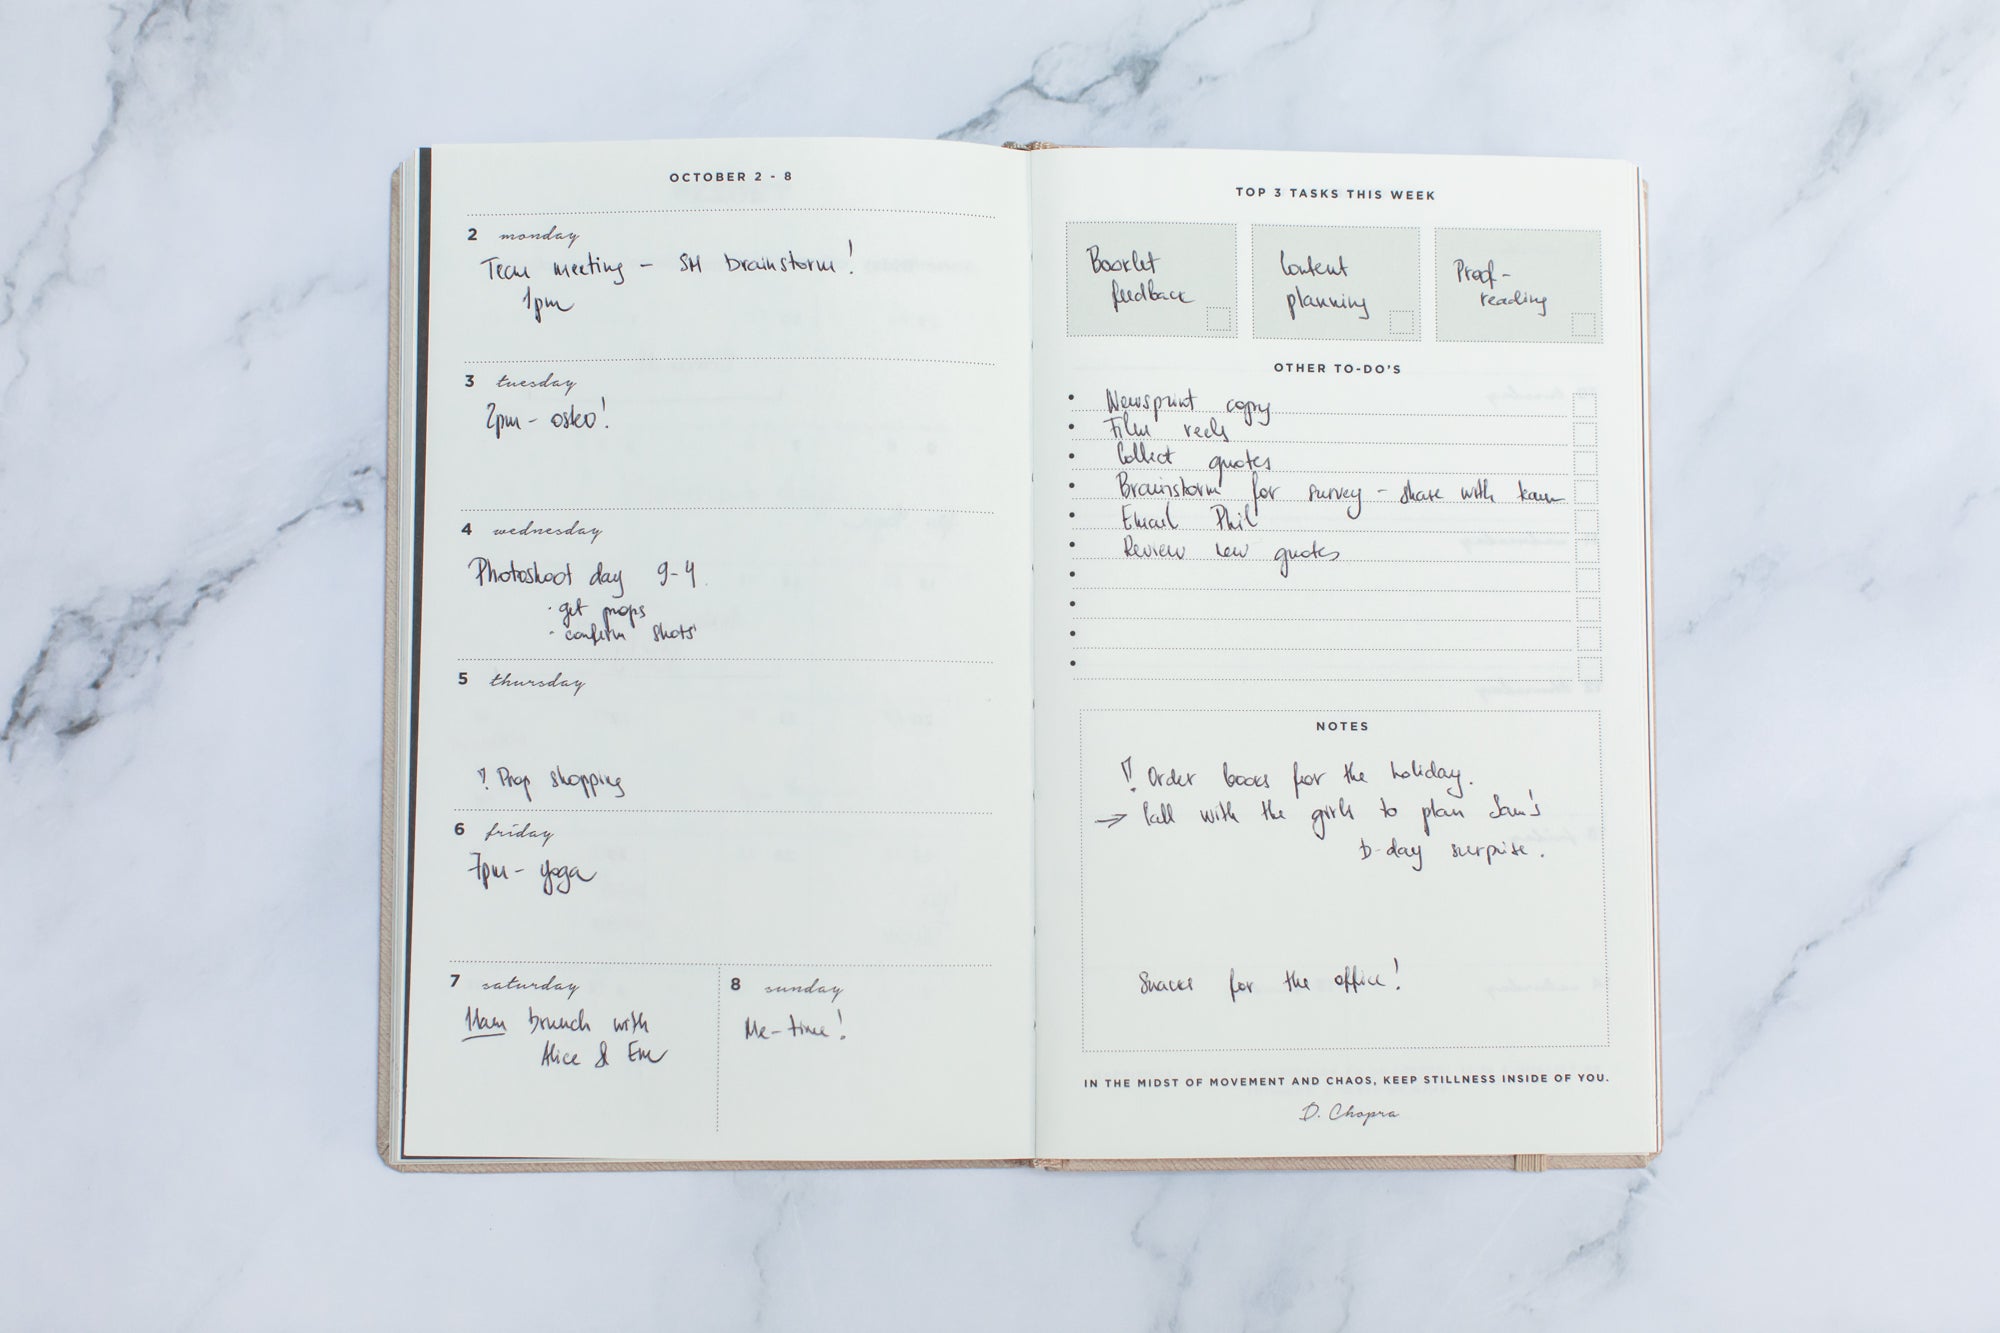 OCTOBER 2 - 8
2 monday
Team meeting - SM brainstorm!
1pm
3 tuesday
2pm - osteo!
4 wednesday
Photoshoot day 9-4.
· get props
· confirm shots
5 thursday
! Prop shopping
6 friday
7pm - yoga
7 saturday
11am brunch with
Alice & Em
8 sunday
Me-time!
TOP 3 TASKS THIS WEEK
Booklet
feedback
Content
planning
Proof-
reading
OTHER TO-DO'S
• Newsprint copy
• Film reels
• Collect quotes
• Brainstorm for survey - share with team
• Email Phil
• Review new quotes
NOTES
!! Order books for the holiday.
→ Call with the girls to plan Sam's
b-day surprise.
Snacks for the office!
IN THE MIDST OF MOVEMENT AND CHAOS, KEEP STILLNESS INSIDE OF YOU.
D. Chopra